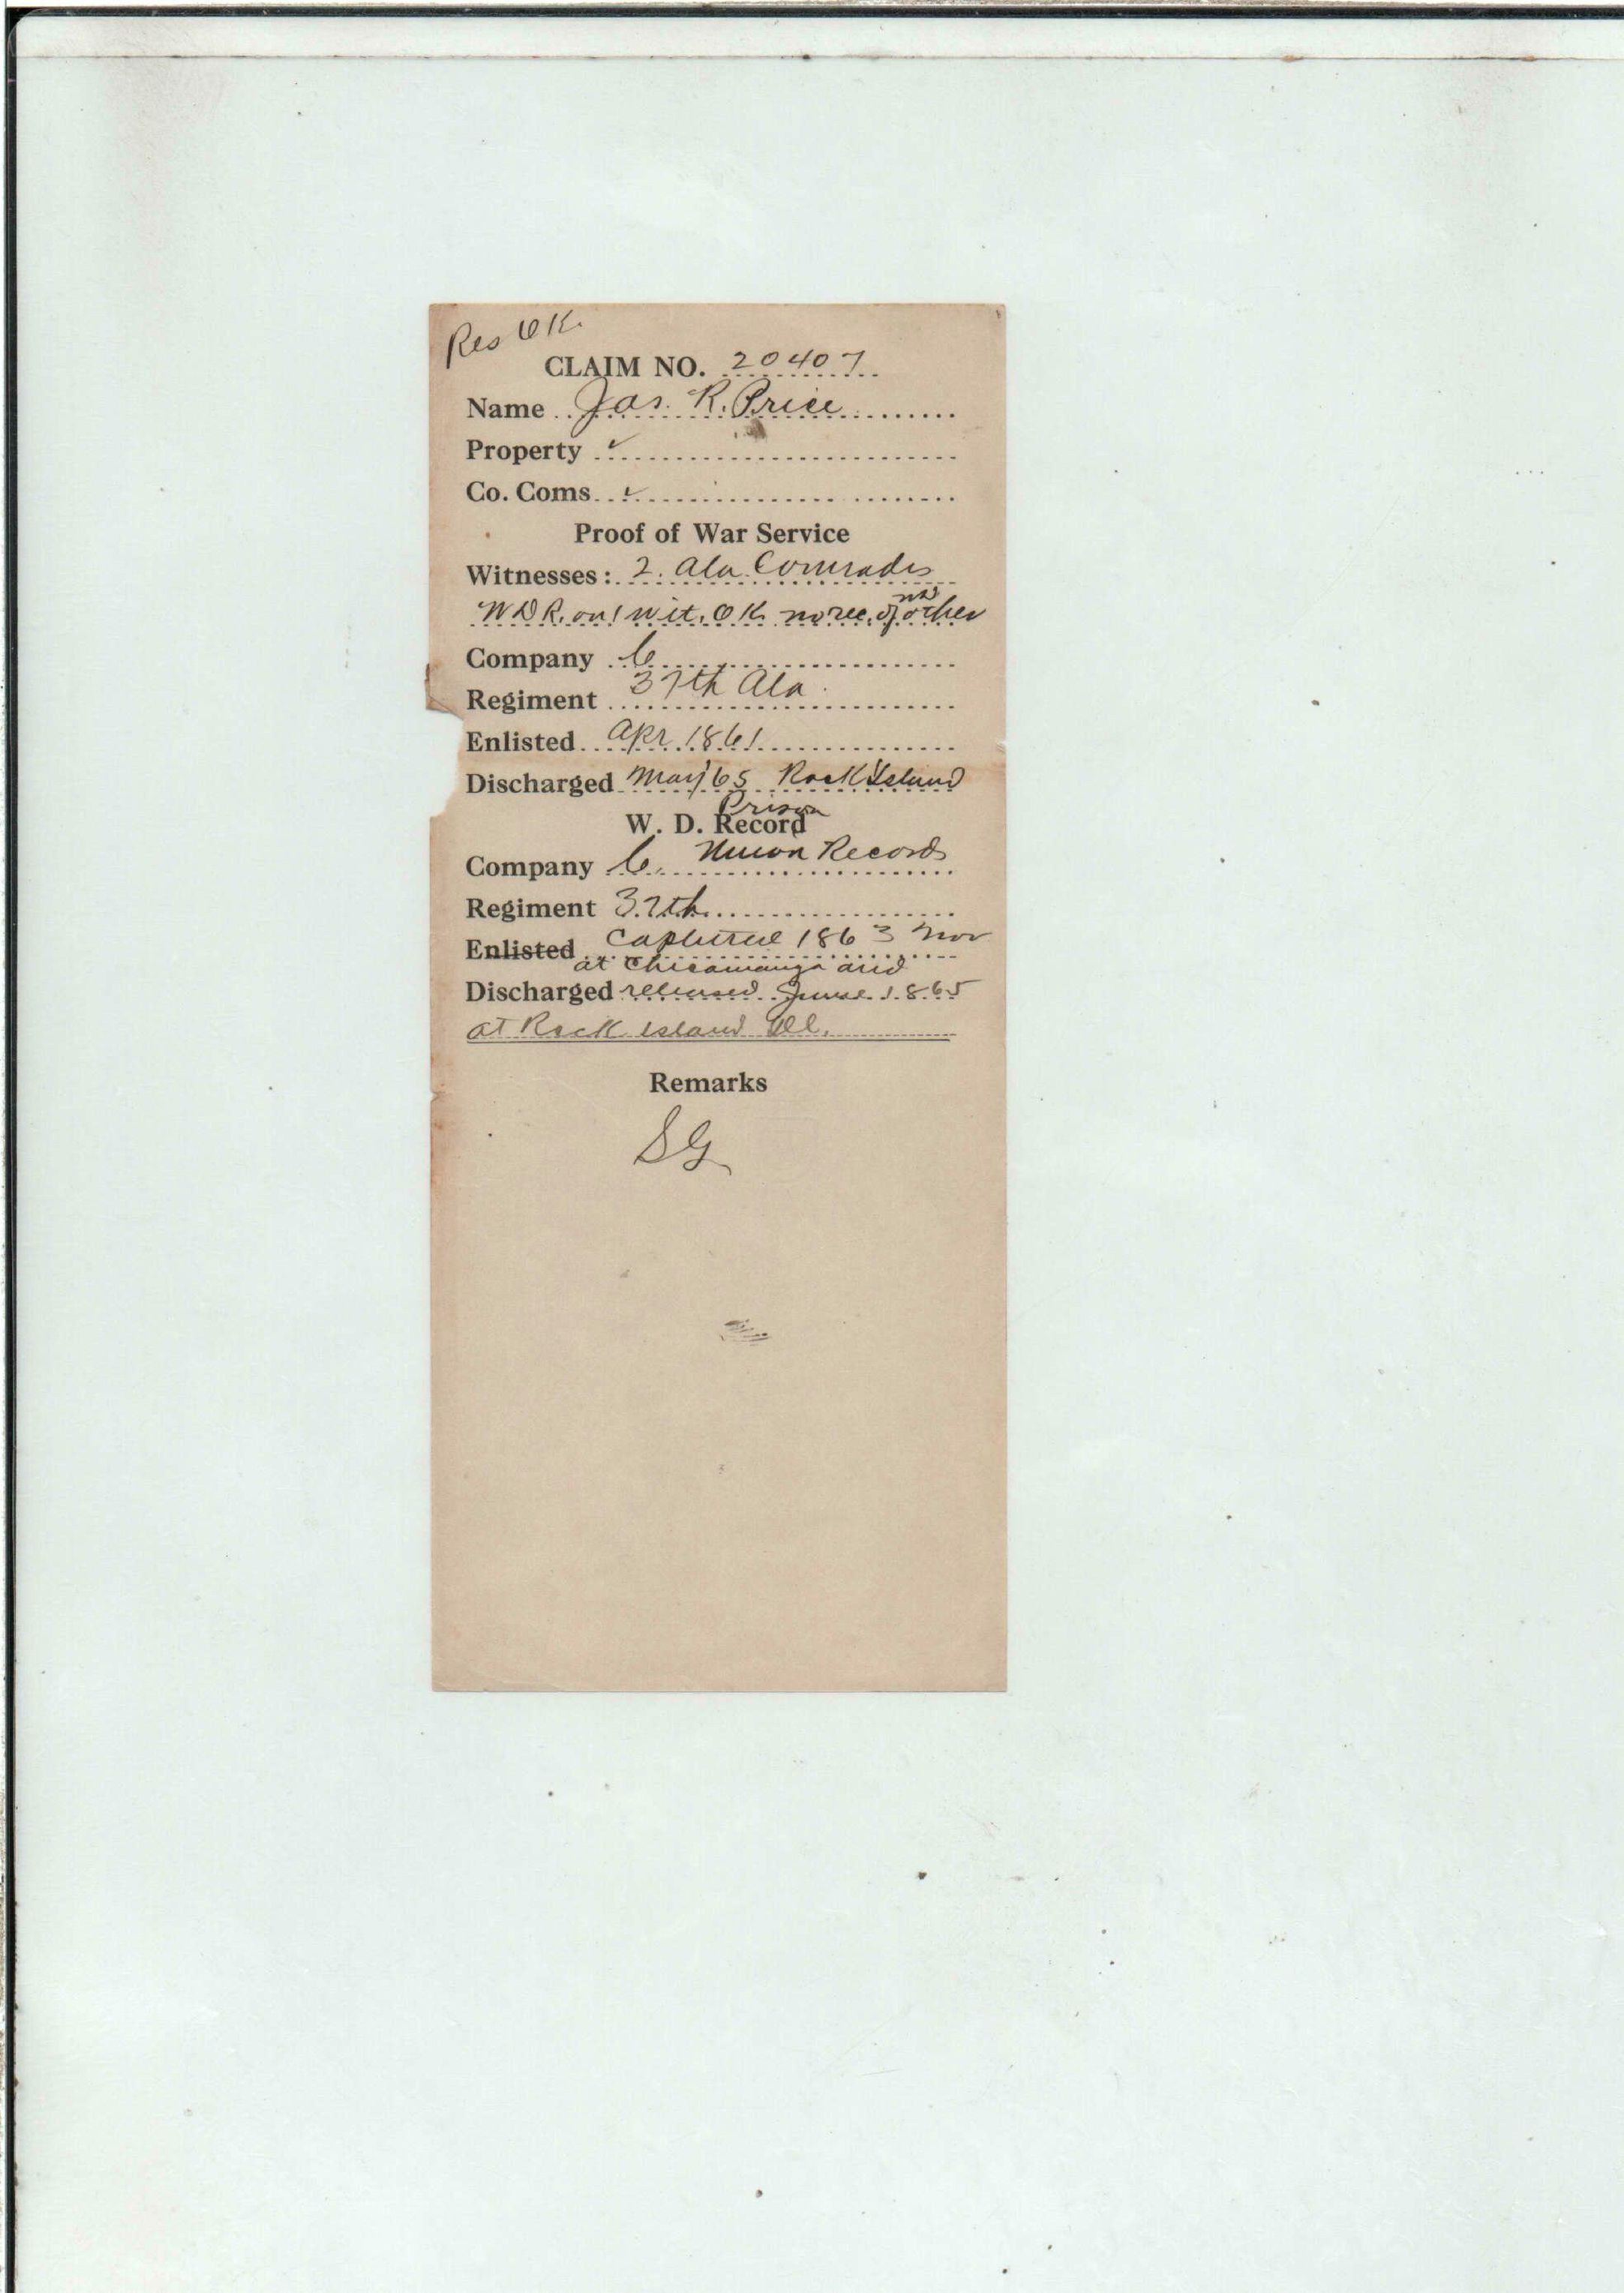 Res OK.
CLAIM NO. 20407
Name Jas. R. Price
Property ✓
Co. Coms ✓
Proof of War Service
Witnesses: 2. Ala Comrades
WDR. on 1 wit. OK no rec. of other
Company C
Regiment 37th Ala.
Enlisted Apr 1861
Discharged May '65 Rock Island
Prison
W. D. Record
Company C. Union Records
Regiment 37th
Enlisted Captured 1863 Nov
at Chicamauga and
Discharged released June 1865
at Rock Island Ill.
Remarks
SG